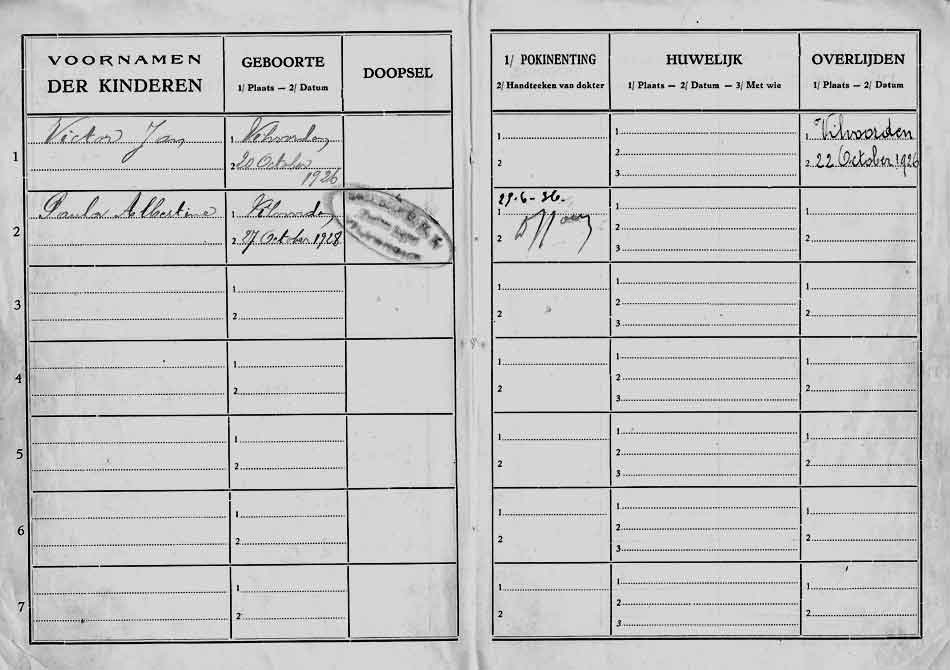 VOORNAMEN
DER KINDEREN
GEBOORTE
1/ Plaats — 2/ Datum
DOOPSEL
1/ POKINENTING
2/ Handteeken van dokter
HUWELIJK
1/ Plaats — 2/ Datum — 3/ Met wie
OVERLIJDEN
1/ Plaats — 2/ Datum
1
Victor Jan
1 Vilvoorden
2 20 October
1926
1
2
1
2
3
1. Vilvoorden
2. 22 October 1926
2
Paula Albertine
1 Vilvoorden
2. 27 October 1928
29-6-36.
1
2
1
2
3
1
2
3
1
2
1
2
1
2
3
1
2
4
1
2
1
2
1
2
3
1
2
5
1
2
1
2
1
2
3
1
2
6
1
2
1
2
1
2
3
1
2
7
1
2
1
2
1
2
3
1
2